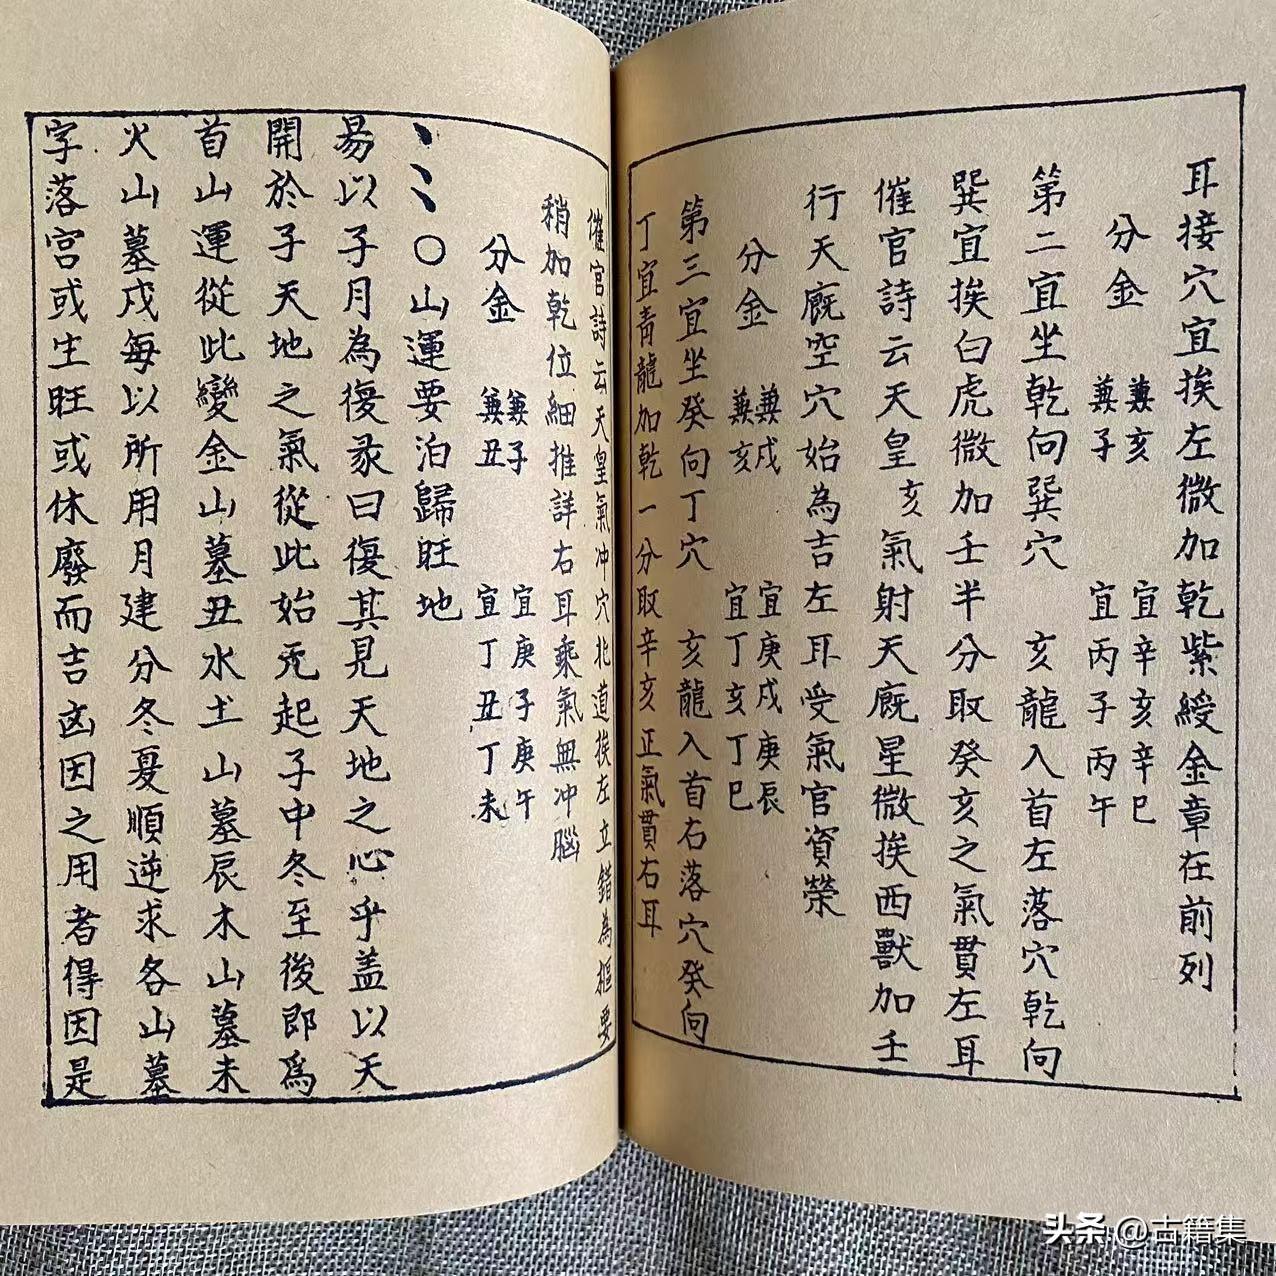 耳接穴宜挨左微加乾紫綬金章在前列
分金 兼亥 宜辛亥辛巳
兼子 宜丙子丙午
第二宜坐乾向巽穴 亥龍入首左落穴乾向
巽宜挨白虎微加壬半分取癸亥之氣貫左耳
催官詩云天皇亥氣射天厩星微挨西獸加壬
行天厩空穴始為吉左耳受氣官資榮
分金 兼戌 宜庚戌庚辰
兼亥 宜丁亥丁巳
第三宜坐癸向丁穴 亥龍入首右落穴癸向
丁宜青龍加乾一分取辛亥正氣貫右耳
催官詩云天皇氣冲穴北道挨左立錯為樞要
稍加乾位細推詳右耳乘氣無冲腦
分金 兼子 宜庚子庚午
兼丑 宜丁丑丁未
〇山運要泊歸旺地
易以子月為復彖曰復其見天地之心乎盖以天
開於子天地之氣從此始旡起子中冬至後即為
首山運從此變金山墓丑水土山墓辰木山墓未
火山墓戌每以所用月建分冬夏順逆求各山墓
字落宮或生旺或休廢而吉凶因之用者得因是
头条 @古籍集